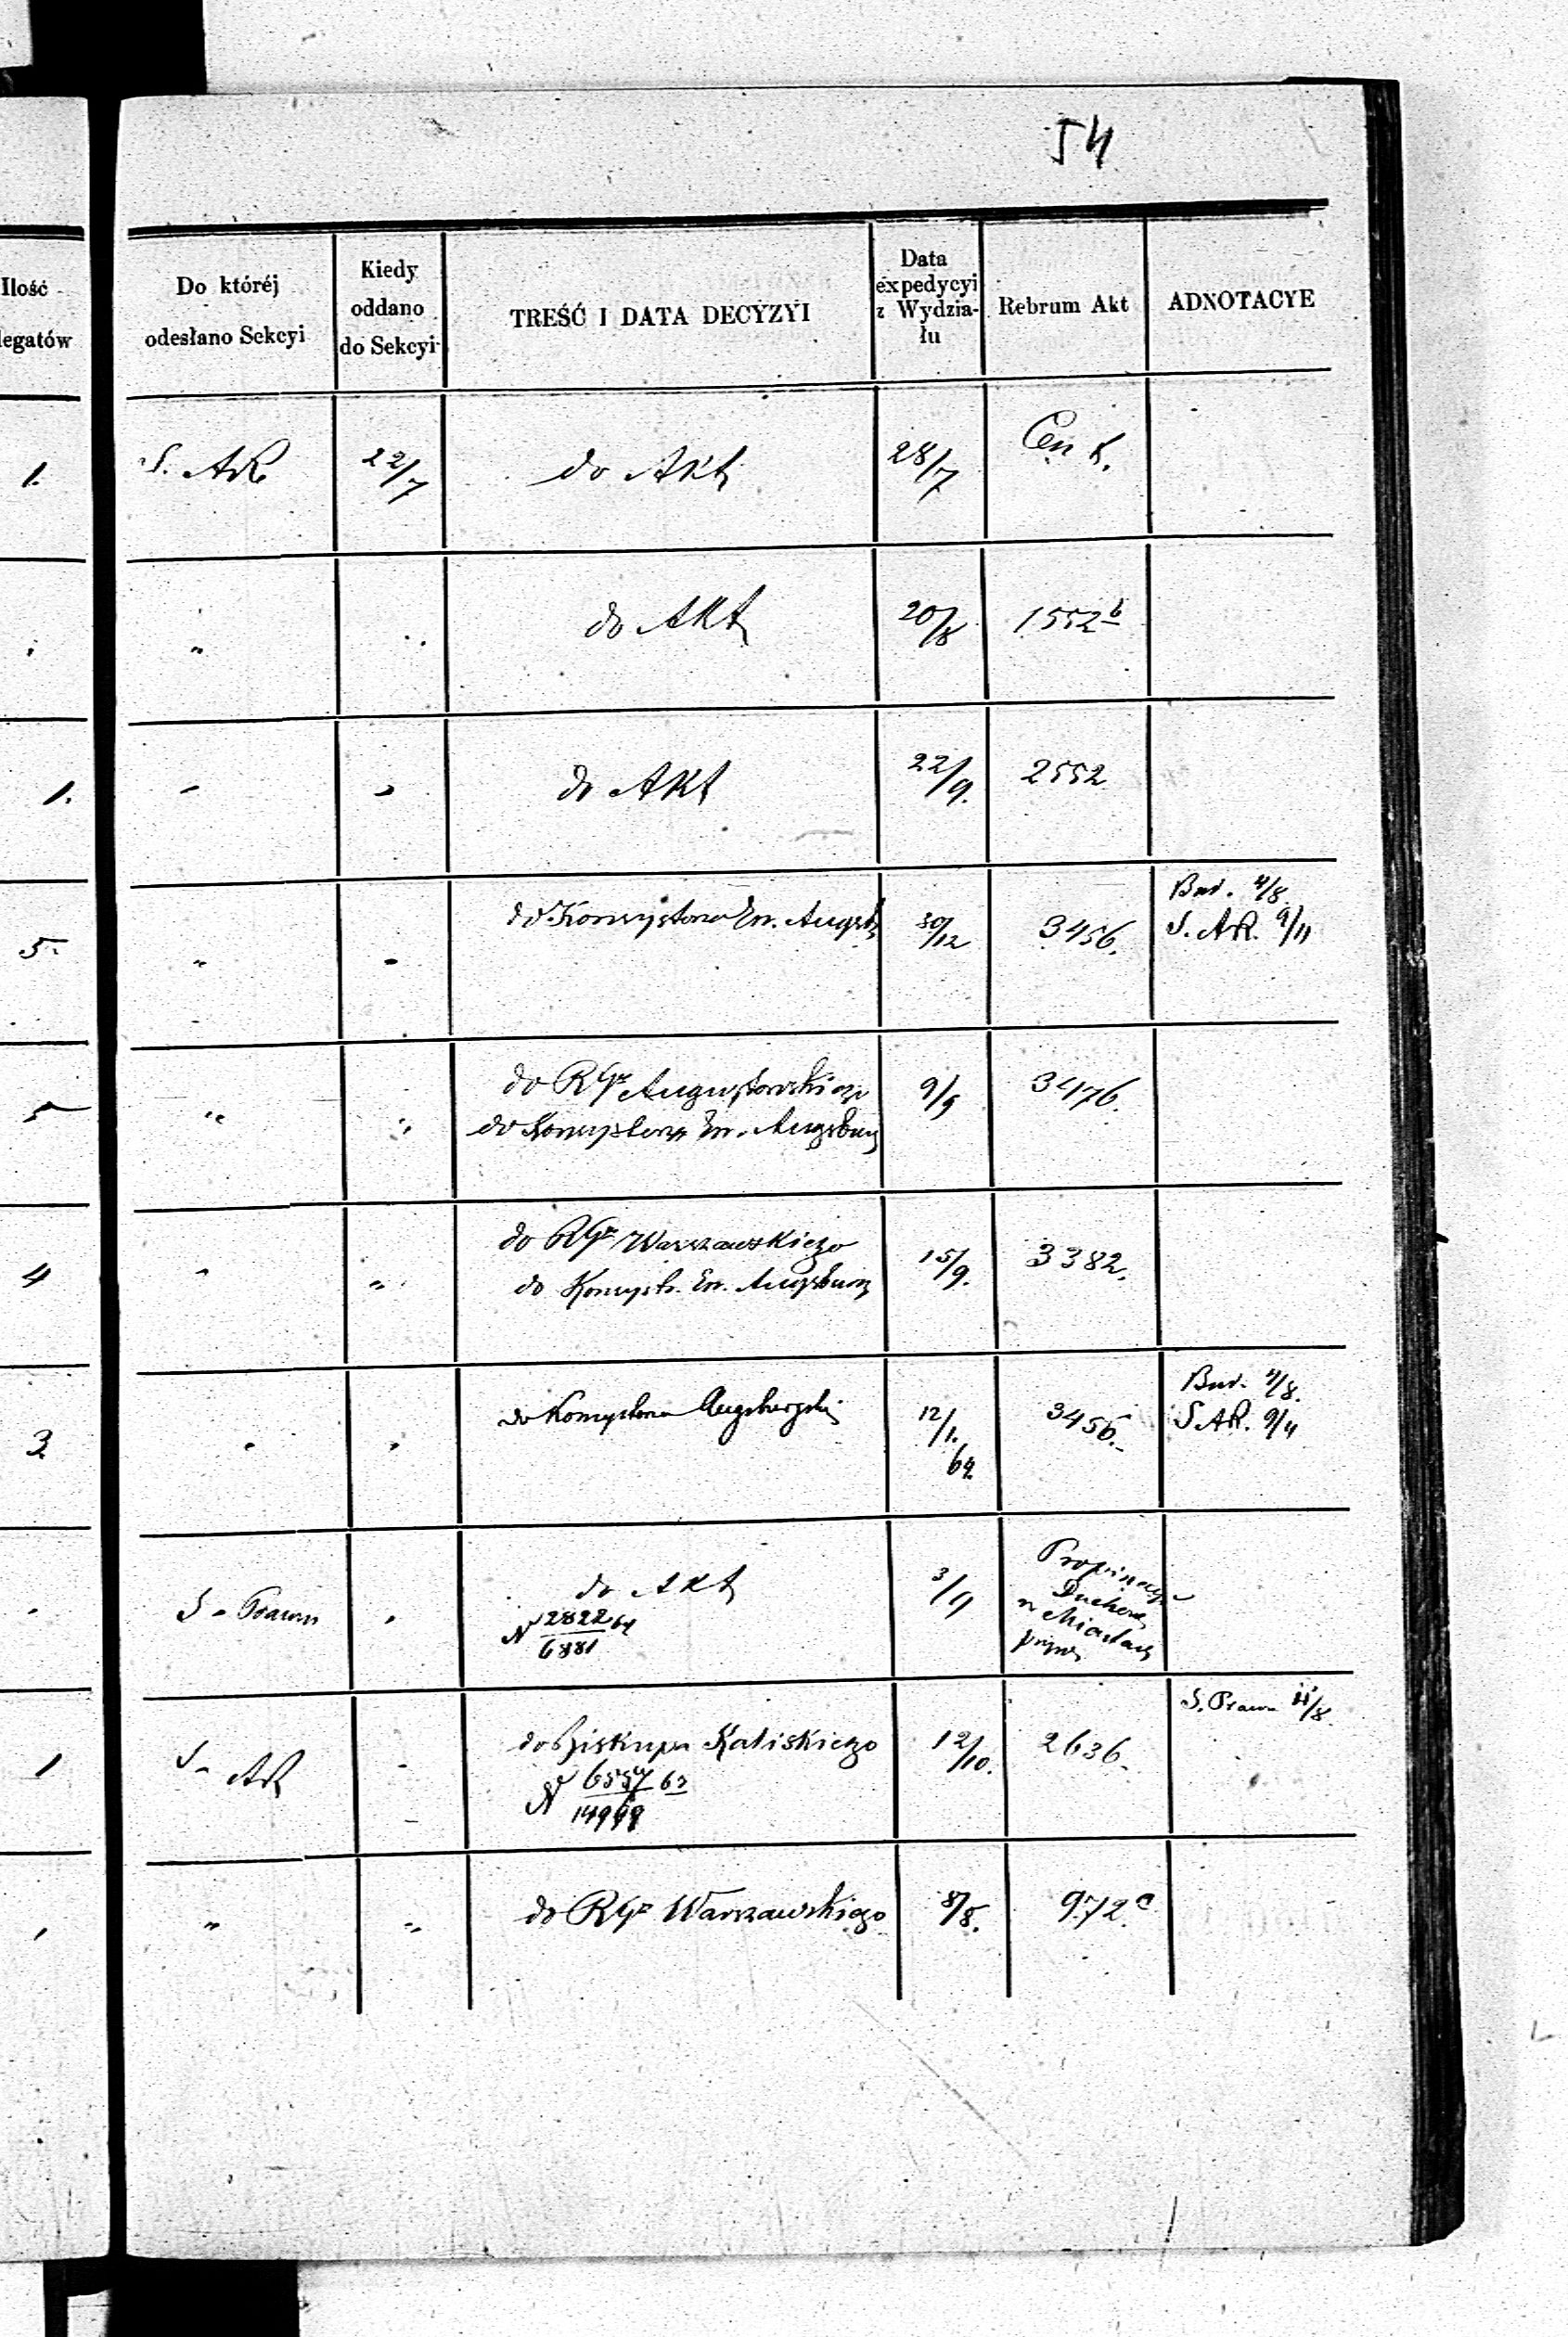 54
Ilość
legatów
Do któréj
odesłano Sekcyi
Kiedy
oddano
do Sekcyi
TREŚĆ I DATA DECYZYI
Data
expedycyi
z Wydzia-
łu
Rebrum Akt
ADNOTACYE
1. S. AR 22/7 do Akt 28/7
" do Akt 20/8 1552 b
1. " " do Akt 22/9. 2552
Bud. 4/8.
5 " " do Konsystorza Ew. Augsb 30/12 3456. S. AR. 9/11
5 " " do RGr Augustowskiego 9/9 3476.
do Konsystorza Ew. Augsburg
4 " " do RGr Warszawskiego 15/9. 3382.
do Konsyst. Ew. Augsburg
Bud. 4/8.
3 " " do Konsystorza Augsburgski 12/1. 3456. S AR. 9/11
64
S. Prawn " do Akt 3/9 Propinacye
N 2822 64 / 6881 Duchow.
w Miastach
S. Prawn 11/8.
1 S. AR do Biskupa Kaliskiego 12/10. 2636
N 6557 63
" " do RGr Warszawskiego 8/8. 972 c